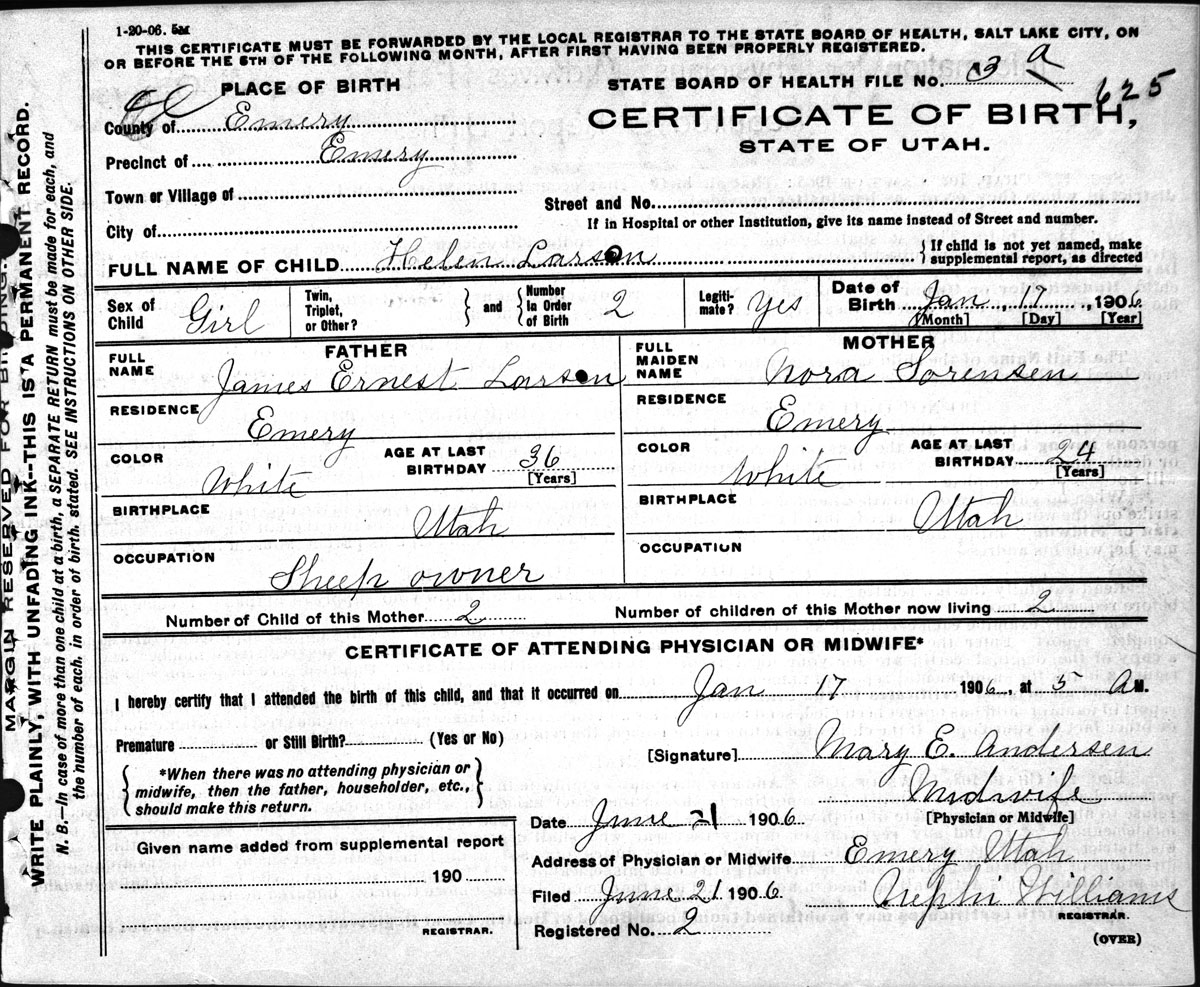 1-20-06. 5M
THIS CERTIFICATE MUST BE FORWARDED BY THE LOCAL REGISTRAR TO THE STATE BOARD OF HEALTH, SALT LAKE CITY, ON
OR BEFORE THE 5TH OF THE FOLLOWING MONTH, AFTER FIRST HAVING BEEN PROPERLY REGISTERED.
PLACE OF BIRTH
County of Emery
Precinct of Emery
Town or Village of
City of
STATE BOARD OF HEALTH FILE NO. 3 a
625
CERTIFICATE OF BIRTH,
STATE OF UTAH.
Street and No.
If in Hospital or other Institution, give its name instead of Street and number.
FULL NAME OF CHILD Helen Larson
} If child is not yet named, make
supplemental report, as directed
Sex of Child Girl
Twin, Triplet, or Other? } and { Number in Order of Birth 2
Legiti-mate? Yes
Date of Birth Jan 17, 1906
[Month] [Day] [Year]
FATHER
FULL NAME James Ernest Larson
RESIDENCE Emery
COLOR White
AGE AT LAST BIRTHDAY 36 [Years]
BIRTHPLACE Utah
OCCUPATION Sheep owner
MOTHER
FULL MAIDEN NAME Nora Sorensen
RESIDENCE Emery
COLOR White
AGE AT LAST BIRTHDAY 24 [Years]
BIRTHPLACE Utah
OCCUPATION
Number of Child of this Mother 2 Number of children of this Mother now living 2
CERTIFICATE OF ATTENDING PHYSICIAN OR MIDWIFE*
I hereby certify that I attended the birth of this child, and that it occurred on Jan 17 1906, at 3 A M.
Premature or Still Birth? (Yes or No)
*When there was no attending physician or
midwife, then the father, householder, etc.,
should make this return.
[Signature] Mary E. Andersen
Midwife
[Physician or Midwife]
Given name added from supplemental report
190
REGISTRAR.
Date June 21 1906.
Address of Physician or Midwife Emery Utah
Filed June 21 1906 Nephi Williams
REGISTRAR.
Registered No. 2
(OVER)
MARGIN RESERVED FOR BINDING.
WRITE PLAINLY, WITH UNFADING INK--THIS IS A PERMANENT RECORD.
N. B.—In case of more than one child at a birth, a SEPARATE RETURN must be made for each, and
the number of each, in order of birth, stated. SEE INSTRUCTIONS ON OTHER SIDE.